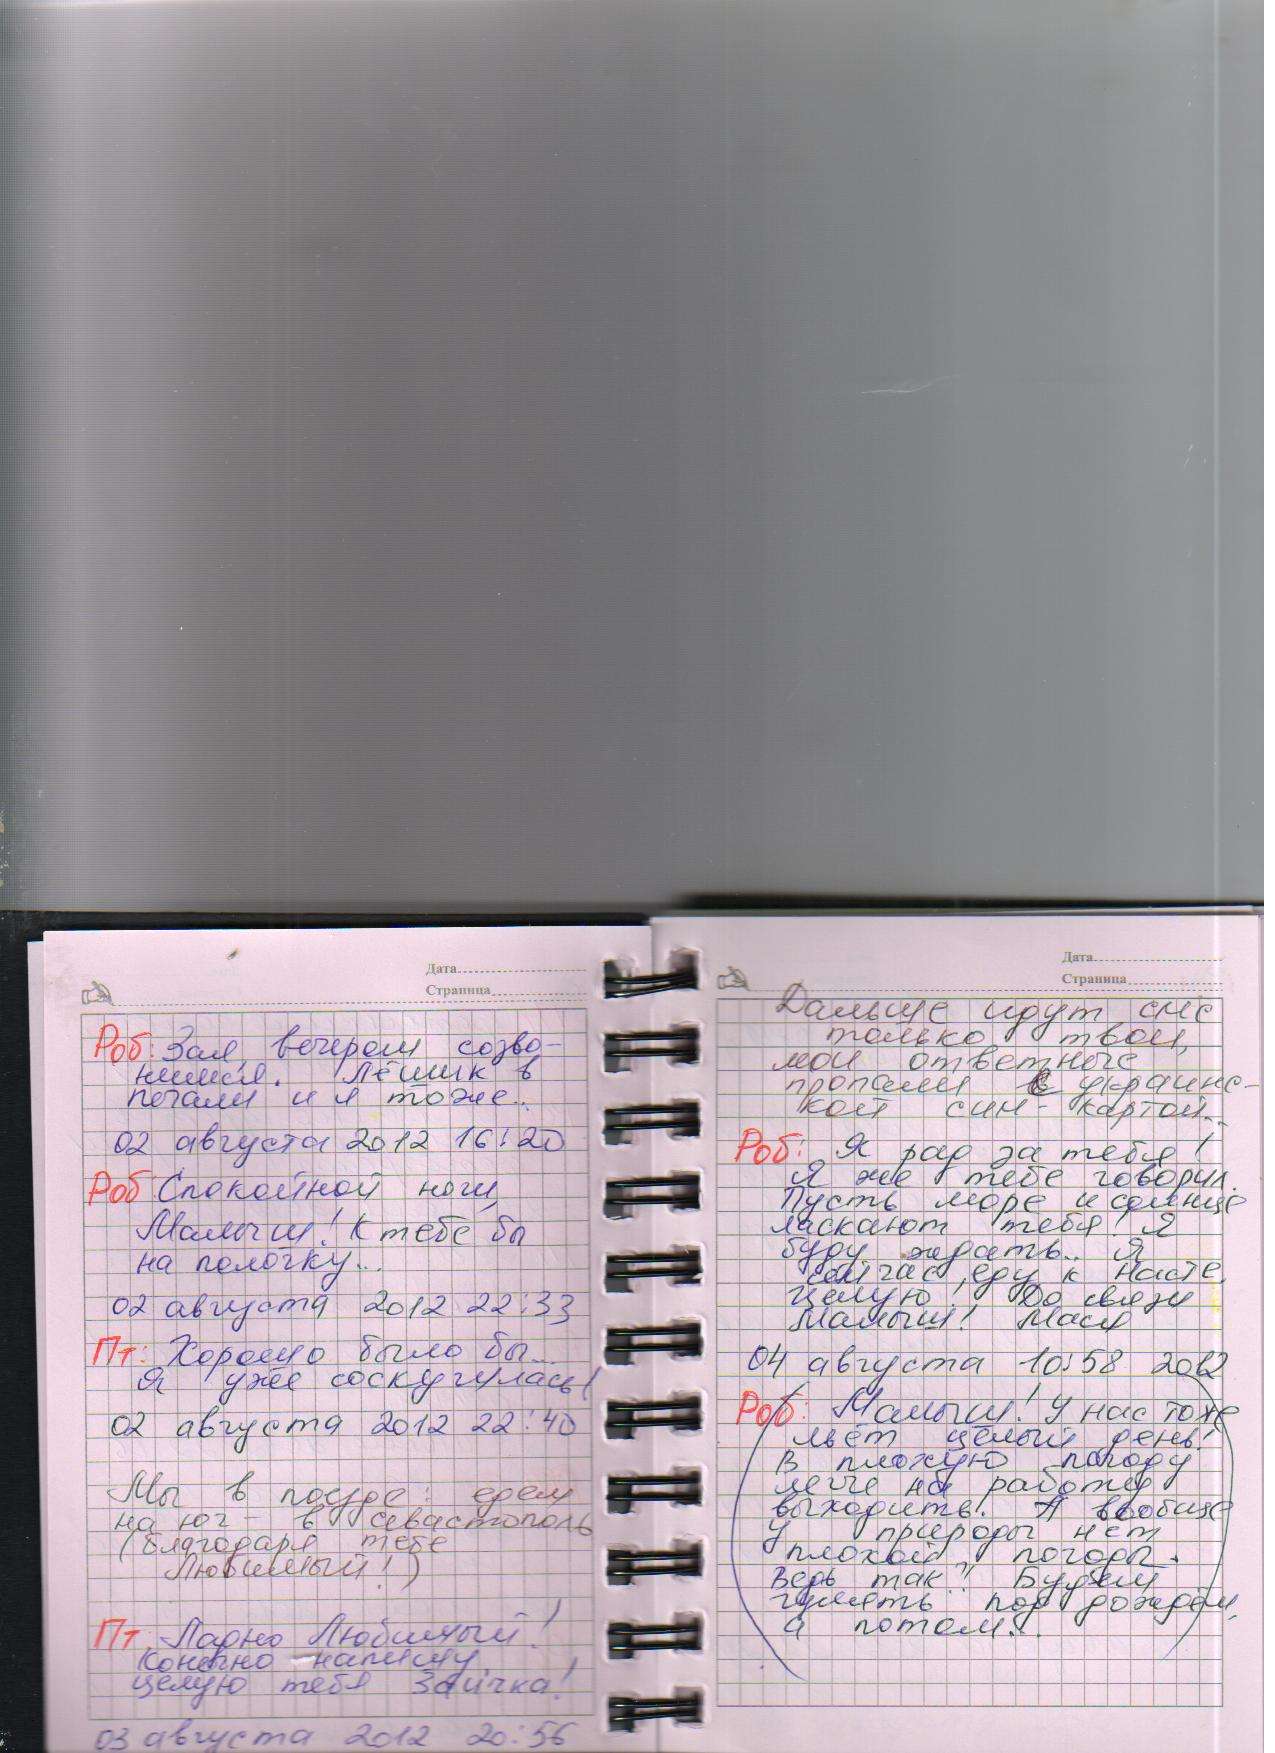 Дата
Страница
Роб: Зая, вечером созво-
нимся. Лёшик в
печали и я тоже..
02 августа 2012 16:20
Роб: Спокойной ночи,
Малыш! К тебе бы
на полочку...
02 августа 2012 22:33
Пт: Хорошо было бы...
Я уже соскучилась!
02 августа 2012 22:40
Мы в поезде: едем
на юг - в Севастополь
(благодаря тебе
Любимый!)
Пт: Ладно Любимый!
Конечно напишу
целую тебя Зайчка!
03 августа 2012 20:56
Дата
Страница
Дальше идут смс
только твои,
мои ответные
пропали с украинс-
кой сим-картой...
Роб: Я рад за тебя!
Я же тебе говорил.
Пусть море и солнце
ласкают тебя! Я
буду ждать.. Я
сейчас еду к Насте,
Целую! До связи
Малыш!
04 августа 10:58 2012
Роб: Малыш! У нас тоже
льёт целый день!
В плохую погоду
легче на работу
выходить! А вообще
у природы нет
плохой погоды.
Ведь так?! Будем
гулять под дождём,
а потом...